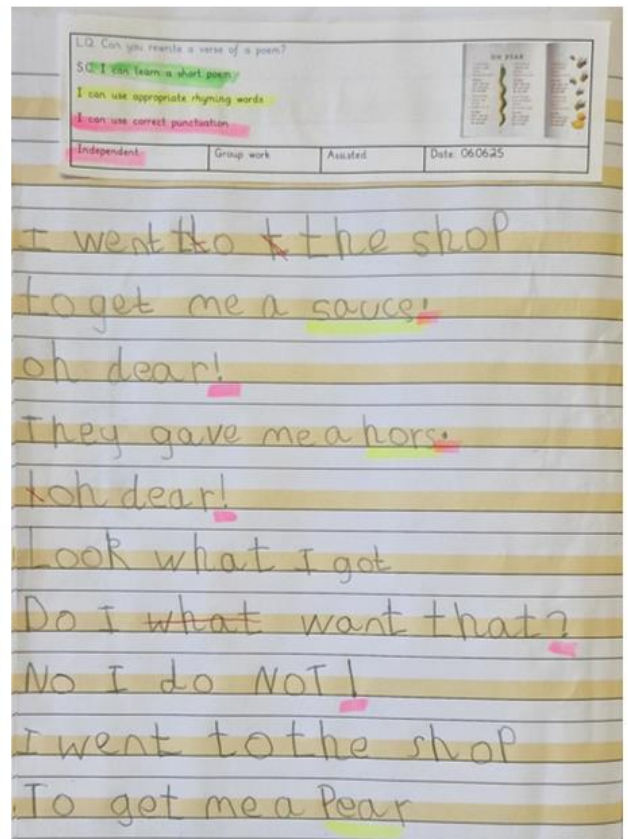 L.Q. Can you rewrite a verse of a poem?
S.C. I can learn a short poem
I can use appropriate rhyming words
I can use correct punctuation
Independent Group work Assisted Date: 060625
OH DEAR
I went to the shop
to get me a sauce.
oh dear!
They gave me a hors.
oh dear!
Look what I got
Do I what want that?
No I do NOT!
I went to the shop
To get me a Pear